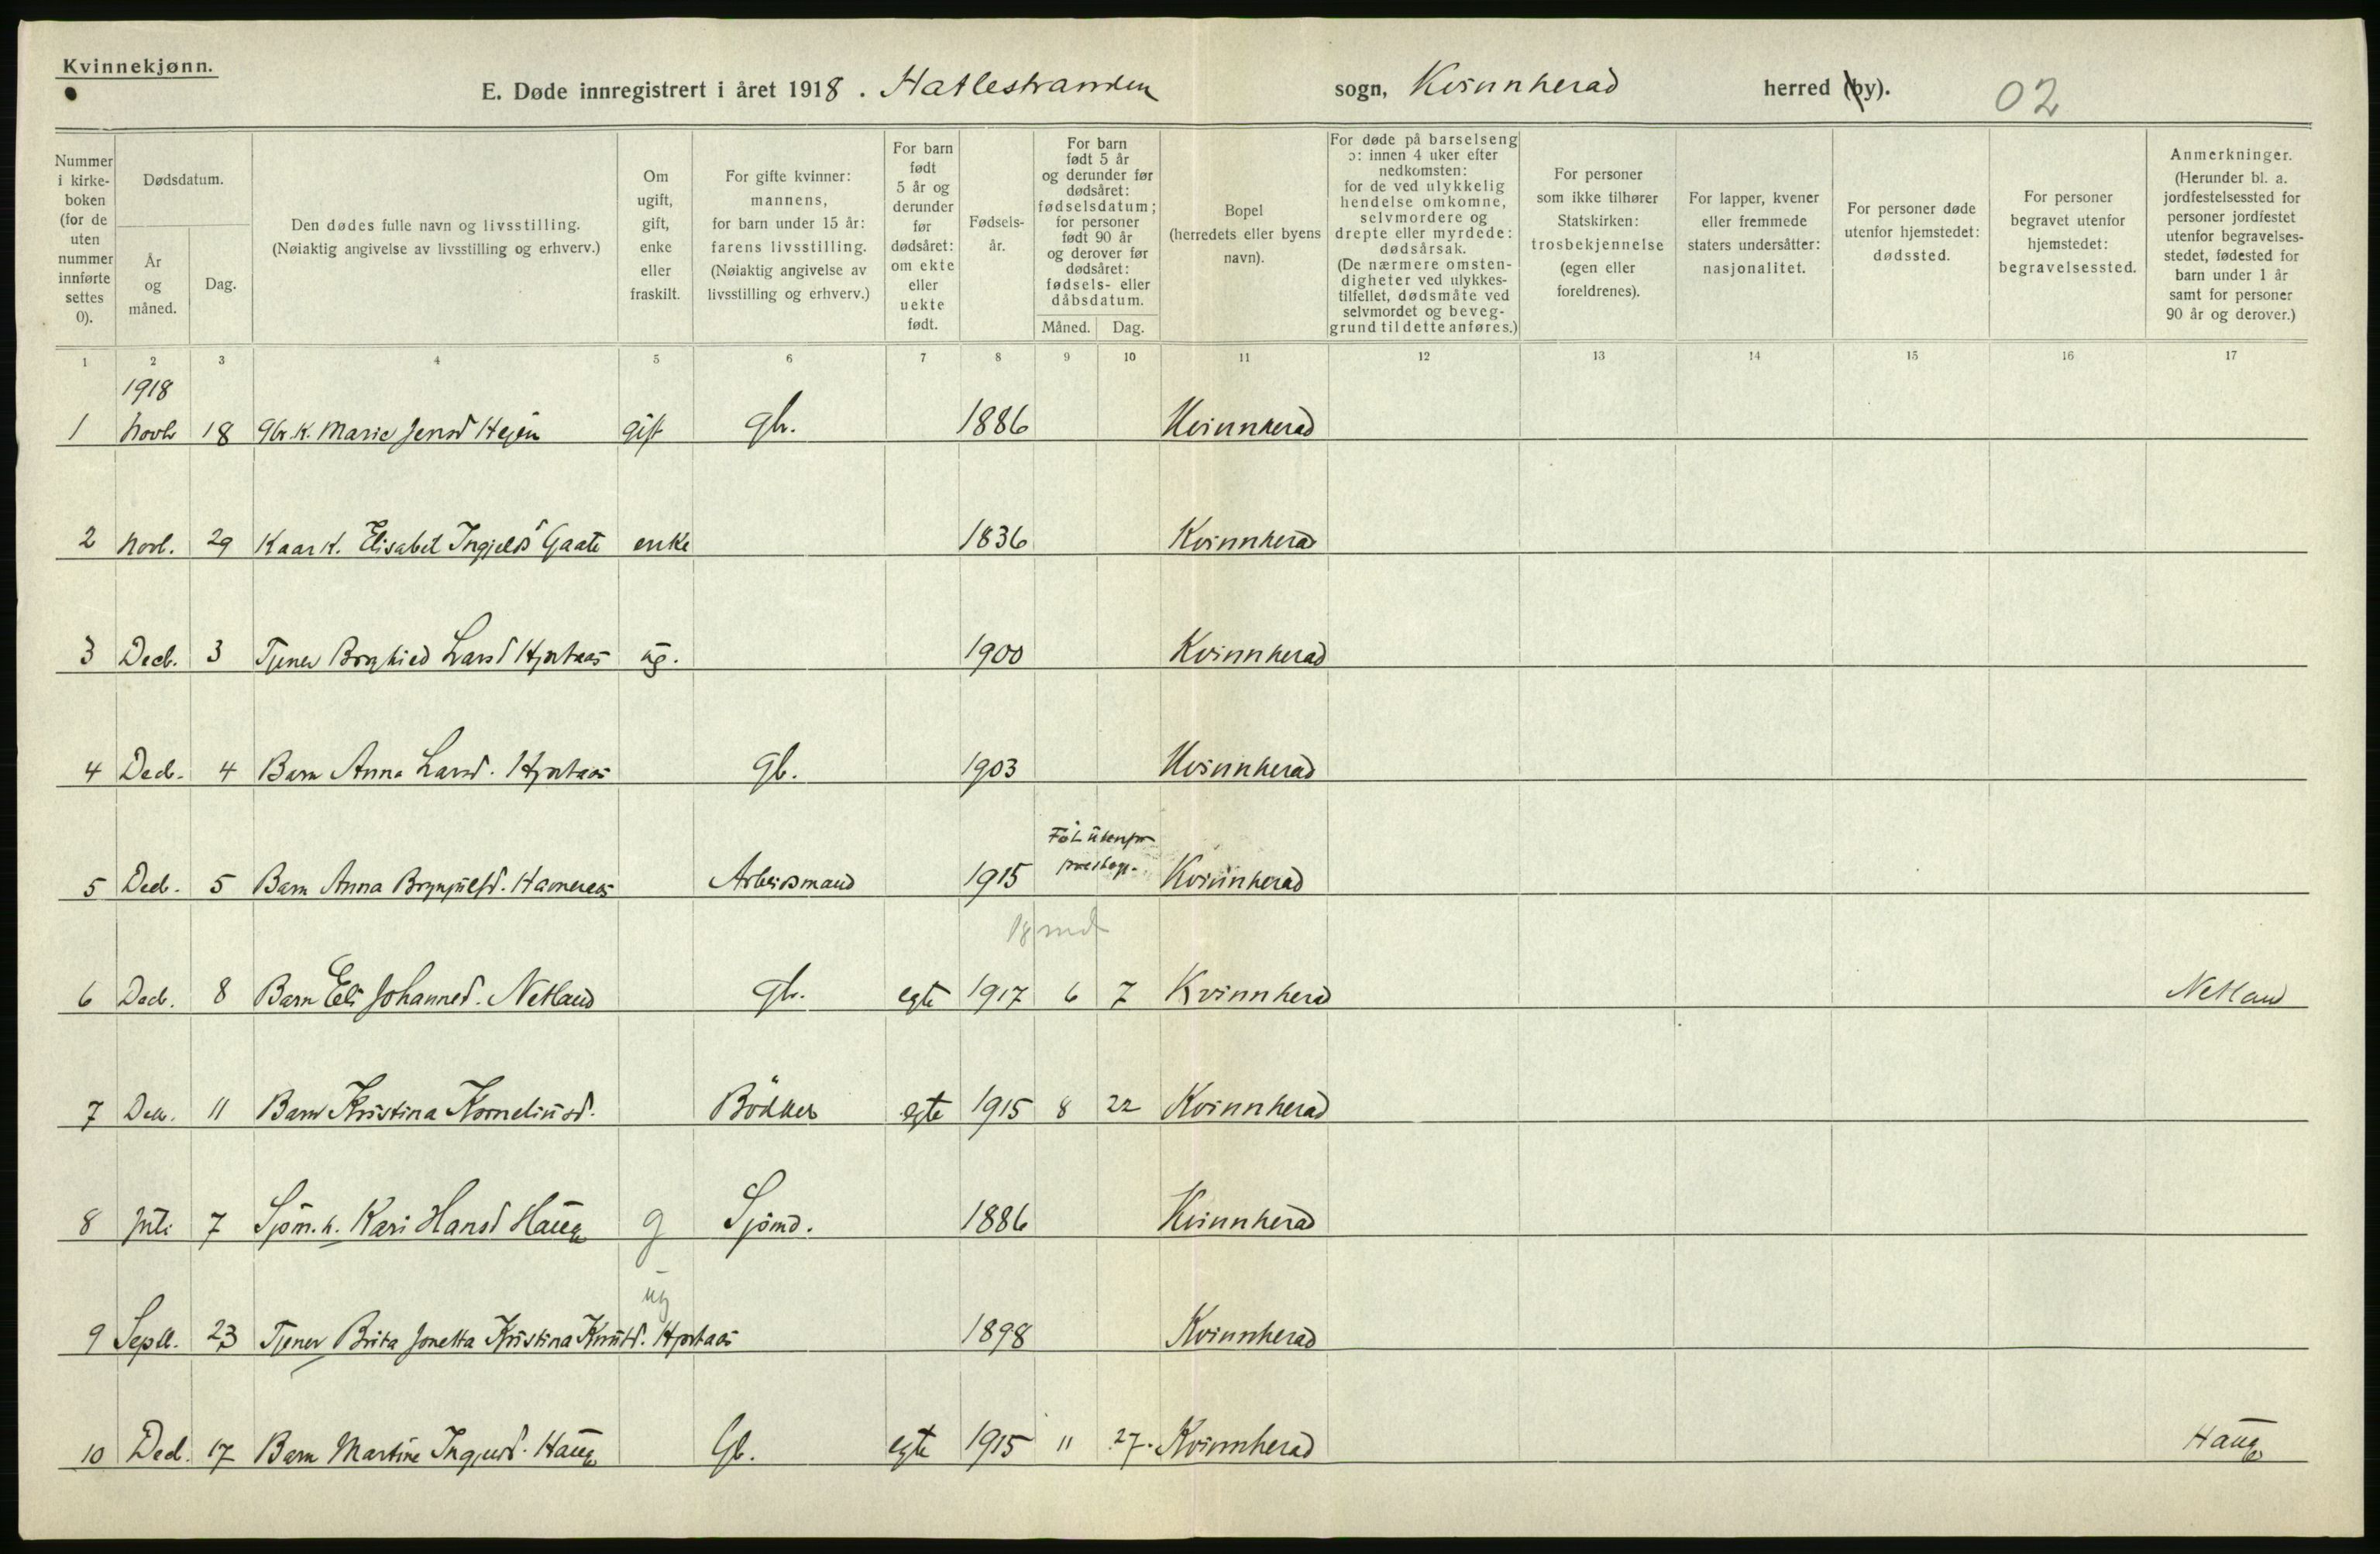 Kvinnekjønn.
E. Døde innregistrert i året 1918. Hatlestranden sogn, Kvinnherad herred (by). 02
Nummer i kirke-boken (for de uten nummer innførte settes 0).
Dødsdatum.
År og måned.
Dag.
Den dødes fulle navn og livsstilling. (Nøiaktig angivelse av livsstilling og erhverv.)
Om ugift, gift, enke eller fraskilt.
For gifte kvinner: mannens, for barn under 15 år: farens livsstilling. (Nøiaktig angivelse av livsstilling og erhverv.)
For barn født 5 år og derunder før dødsåret: om ekte eller uekte født.
Fødsels-år.
For barn født 5 år og derunder før dødsåret: fødselsdatum; for personer født 90 år og derover før dødsåret: fødsels- eller dåbsdatum.
Måned.
Dag.
Bopel (herredets eller byens navn).
For døde på barselseng ɔ: innen 4 uker efter nedkomsten: for de ved ulykkelig hendelse omkomne, selvmordere og drepte eller myrdede: dødsårsak. (De nærmere omsten-digheter ved ulykkes-tilfellet, dødsmåte ved selvmordet og beveg-grund til dette anføres.)
For personer som ikke tilhører Statskirken: trosbekjennelse (egen eller foreldrenes).
For lapper, kvener eller fremmede staters undersåtter: nasjonalitet.
For personer døde utenfor hjemstedet: dødssted.
For personer begravet utenfor hjemstedet: begravelsessted.
Anmerkninger. (Herunder bl. a. jordfestelsessted for personer jordfestet utenfor begravelses-stedet, fødested for barn under 1 år samt for personer 90 år og derover.)
1 2 3 4 5 6 7 8 9 10 11 12 13 14 15 16 17
1918
1 Novb 18 Gbr.k. Marie Jensd gift Gbr. 1886 Kvinnherad
2 Novb. 29 Kaark. Elisabet Ingjelds Gaate enke 1836 Kvinnherad
3 Decb. 3 Tjener Borghild Larsd Hjortaas ug. 1900 Kvinnherad
4 Decb. 4 Barn Anna Larsd. Hjortaas Gb. 1903 Kvinnherad
Föd utenfor
prestegj.
5 Decb. 5 Barn Anna Brynjulfsd. Arbeidsmand 1915 Kvinnherad
18 mnd
6 Decb. 8 Barn Eli Johannesd. Netland Gbr. egte 1917 6 7 Kvinnherad Netland
7 Decb. 11 Barn Kristina Korneliusd. Bödker egte 1915 8 22 Kvinnherad
8 Juli 7 Sjöm.k. Kari Hansd Hauge g Sjömd. 1886 Kvinnherad
ug
9 Septb. 23 Tjener Brita Jonetta Kristina Knutsd. Hjortaas 1898 Kvinnherad
10 Decb. 17 Barn Martine Ingjerd. Hauge Gb. egte 1915 11 27. Kvinnherad Hauge